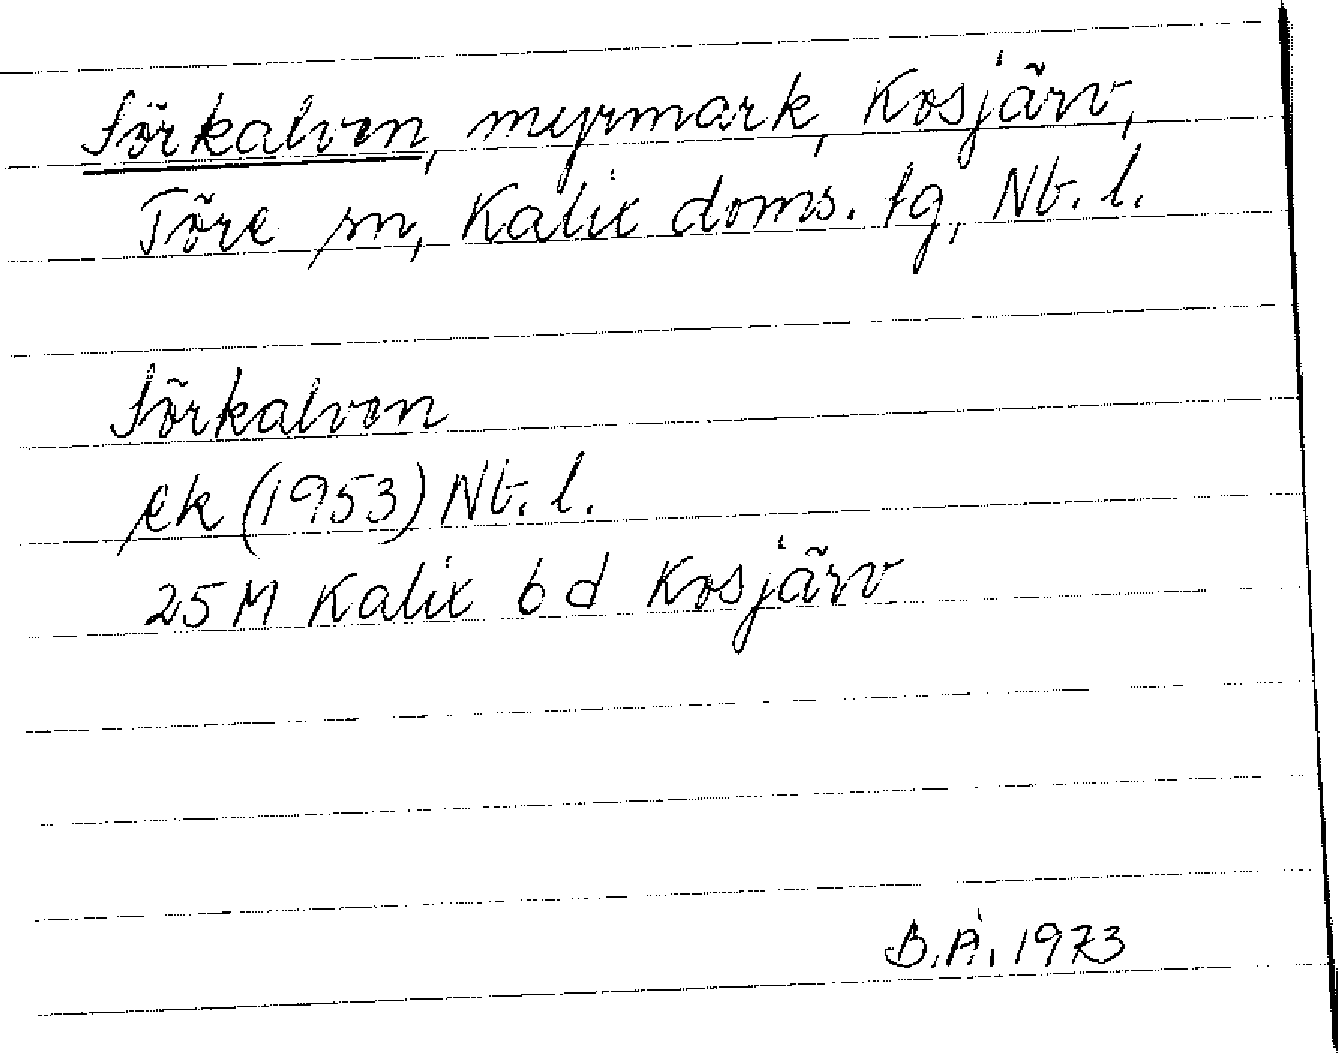 Sörkalven, myrmark, Kosjärv,
Töre sn, Kalix doms. tg, Nb. l.
Sörkalven
ek (1953) Nb. l.
25 M Kalix 6 d Kosjärv
B.Å. 1973